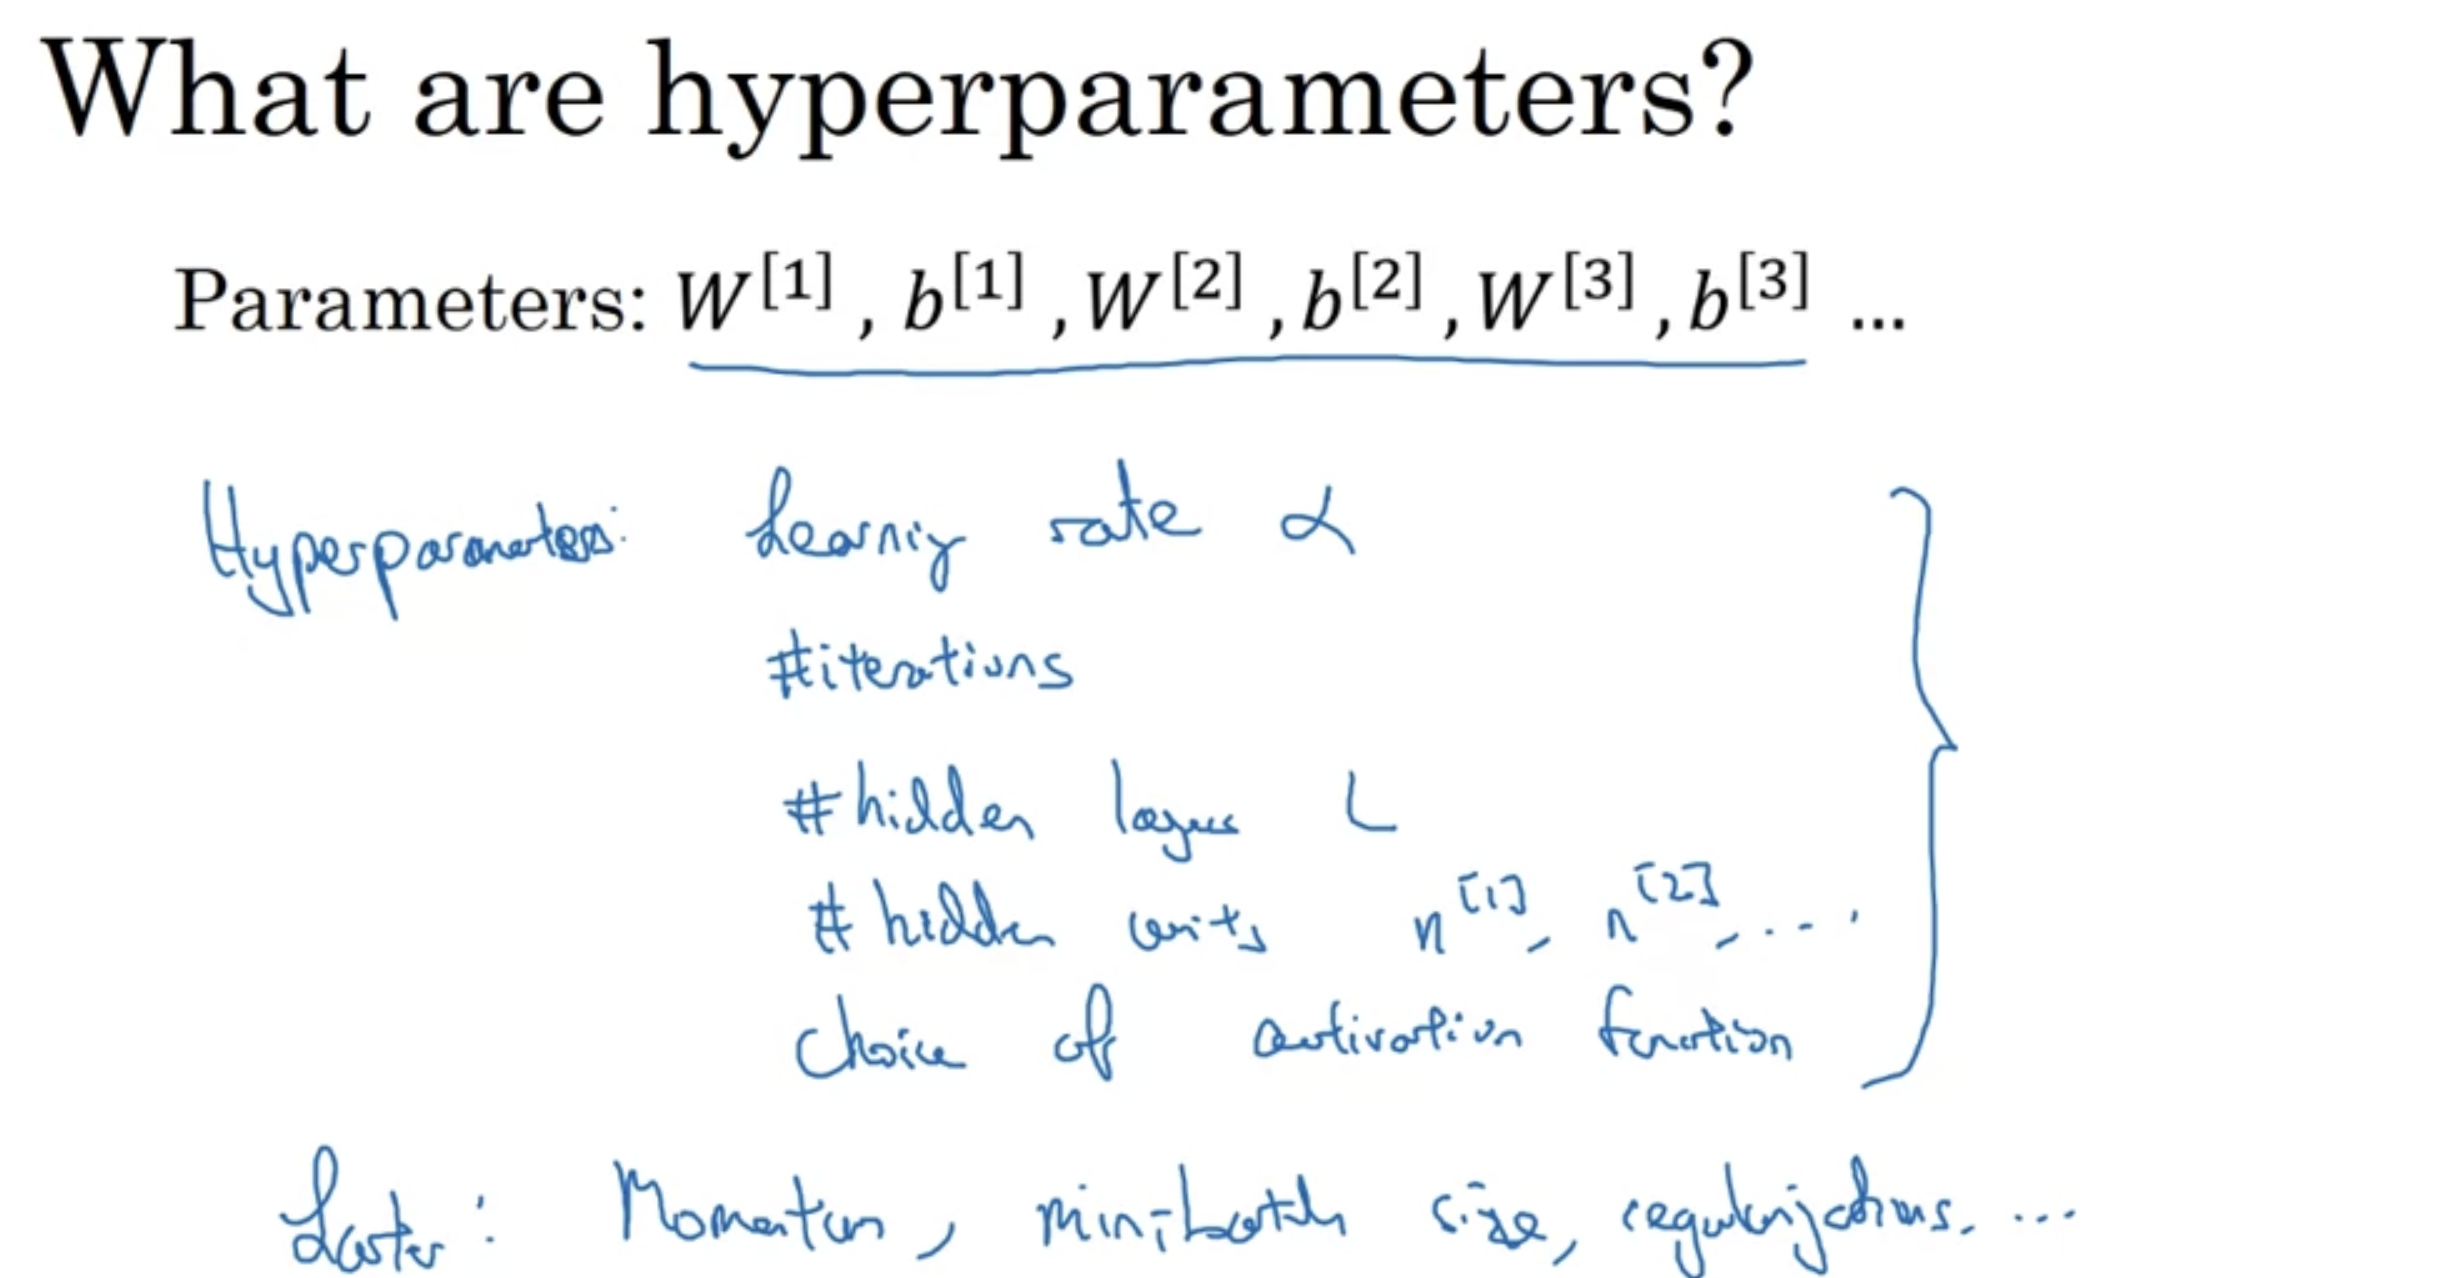 What are hyperparameters?
Parameters: W^[1] , b^[1] , W^[2] , b^[2] , W^[3] , b^[3] ...
Hyperparameters: Learning rate α
#iterations
#hidden layers L
# hidden units n^[1], n^[2], ....
Choice of activation function
Later: Momentum, minibatch size, regularizations. ...